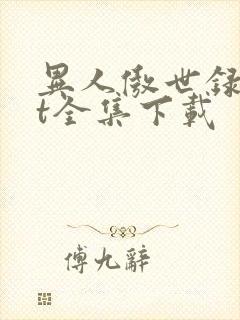 異人傲世録
t全集下載
傅九辭